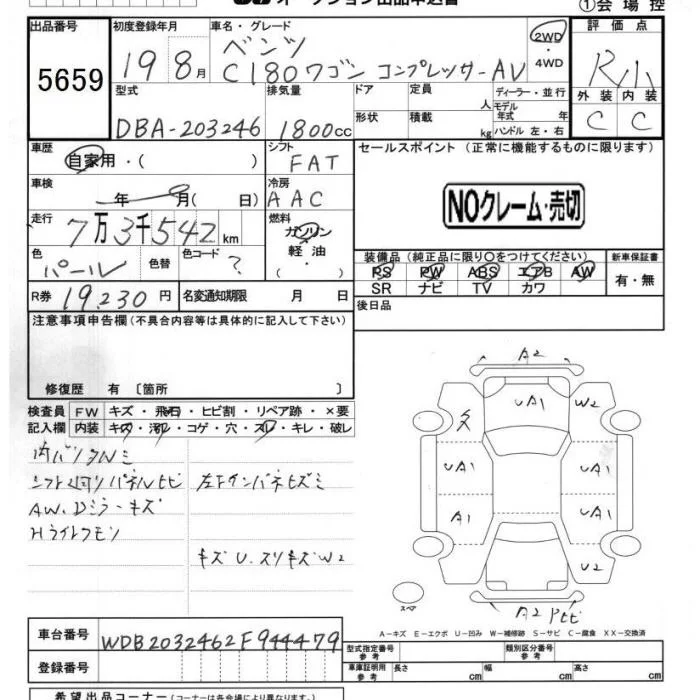 オークション出品申込書
①会場控
出品番号
5659
初度登録年月
19 8月
車名・グレード
ベンツ
C180ワゴン コンプレッサーAV
2WD
・4WD
評価点
R小
外装 内装
C C
型式
DBA-203246
排気量
1800cc
ドア
形状
定員
人
積載
kg
ディーラー・並行
モデル年式 年
ハンドル 左・右
車歴
自家用・( )
シフト
FAT
セールスポイント (正常に機能するものに限ります)
NOクレーム・売切
車検
年 月( 日)
冷房
AAC
走行
7万3千542km
燃料
ガソリン
軽油
・( )
色
パール
色替
色コード
?
装備品 (純正品に限り○をつけてください)
PS PW ABS エアB AW
SR ナビ TV カワ
新車保証書
有・無
R券 19,230円
名変通知期限 月 日
後日品
注意事項申告欄 (不具合内容等は具体的に記入して下さい)
修復歴 有 〔箇所 〕
検査員
記入欄
FW キズ・飛石・ヒビ割・リペア跡・×要
内装 キズ・汚レ・コゲ・穴・スレ・キレ・破レ
シフト廻りパネルヒビ
AW.Dミラーキズ
Hライトクモリ
キズU.スリキズW2
A2
UA1
W2
UA1
UA1
A1
UA1
U2
A2
スペア
A−キズ E−エクボ U−凹み W−補修跡 S−サビ C−腐食 XX−交換済
車台番号
WDB2032462F944479
登録番号
型式指定番号
参考
類別区分番号
参考
車庫証明用
参考
長さ cm
幅 cm
高さ cm
希望出品コーナー(名称は各会場により異なります)